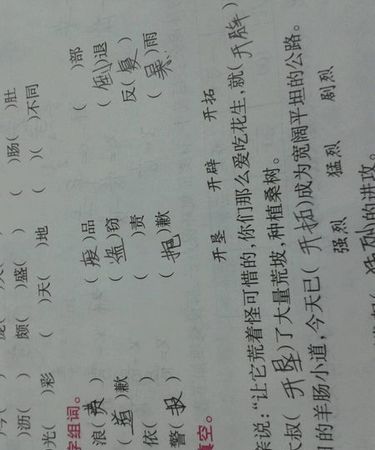 )沥( ) 颇( )盛( ) ( )肠( )肚
光( )彩 ( )天( )地 ( )( )不同
字组词。
浪(费) (废)品 ( )部
( )歉 (盗)窃 (倒)退
依( ) ( )责 反(复)
警(报) (抱)歉 ( )雨
填空。
开垦 开辟 开拓
亲说：“让它荒着怪可惜的，你们那么爱吃花生，就(开辟)
大叔(开垦)了大量荒坡，种植桑树。
的羊肠小道，今天已(开拓)成为宽阔平坦的公路。
强烈 猛烈 剧烈
猛烈的进攻。